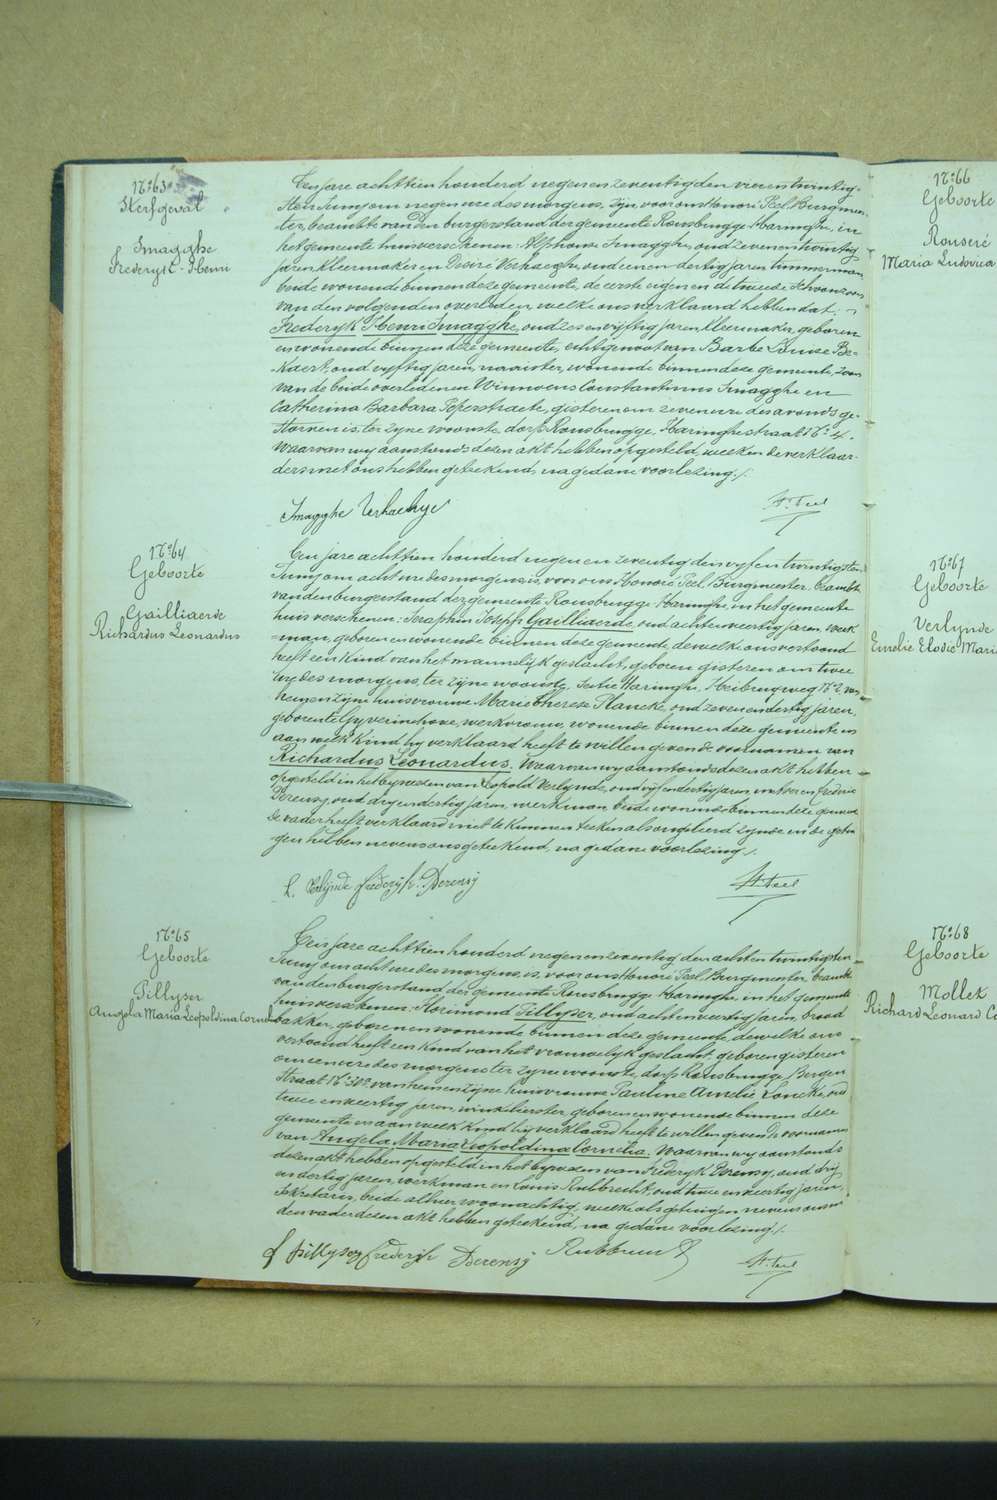 N:63
Sterfgeval
Imagghe
Frederyk-Henri
Ten jare achttien honderd negen en zeventig den vier en twintig-
sten Juny om negen ure des morgens, zijn, voor ons Honoré Peel, Burgmee-
ter, beambte van den burgerstand der gemeente Rousbrugge-Haringhe, in
het gemeentehuis verschenen: Alphonse Imagghe, oud zeven en twintig
jaren, kleermaker en Desiré Verhaeghe, oud een en dertig jaren, timmerman,
beide wonende binnen deze gemeente, de eerste eigen en de tweede schoonzoon
van den volgenden overleden, welke ons verklaard hebben dat
Frederyk Henri Imagghe, oud zes en vyftig jaren, kleermaker, geboren
en wonende binnen deze gemeente, echtgenoot van Barbe Louise Be-
kaert, oud vyftig jaren, naaister, wonende binnen deze gemeente, zoon
van de beide overledenen Winnocus Constantinus Imagghe en
Catherina Barbara Peperstraete, gisteren om zeven ure des avonds ge-
storven is, ter zyne woonste dorp Rousbrugge, Haringhestraat N:4.
Waarvan wy aanstonds dezen akt hebben opgesteld, welken de verklaar-
ders met ons hebben geteekend, na gedane voorlezing./.
Imagghe Verhaeghe
H. Peel
N:64
Geboorte
Gailliaerde
Richardus Leonardus
Ten jare achttien honderd negen en zeventig den vyf en twintigsten
Juny om acht ure des morgens is, voor ons Honoré Peel, Burgmeester, beambte
van den burgerstand der gemeente Rousbrugge-Haringhe, in het gemeente
huis verschenen: Seraphin Joseph Gailliaerde, oud acht en veertig jaren, werk
=man, geboren en wonende binnen deze gemeente, dewelke ons vertoond
heeft een kind van het mannelyk geslacht, geboren gisteren om twee
ure des morgens, ter zyne woonste, sectie Haringhe, Heibrugweg N:2, van
hem en zyne huisvrouwe Marie Therese Plancke, oud zeven en dertig jaren,
geboren te Gyverinchove, werkvrouw, wonende binnen deze gemeente en
aan welk kind hy verklaard heeft te willen geven de voornamen van
Richardus Leonardus. Waarvan wy aanstonds dezen akt hebben
opgesteld in het bywezen van Leopold Verlynde, oud vyf en dertig jaren, en Frederic
Derensy, oud dry en dertig jaren, werkman, beide wonende binnen deze gemeente
De vader heeft verklaard niet te kunnen teeken als ongeleerd zynde en de getui-
gen hebben nevens ons geteekend, na gedane voorlezing./.
L. Verlynde Frederyk Derensy
H. Peel
N:65
Geboorte
Pillyser
Angela Maria Leopoldina Cornelia
Ten jare achttien honderd negen en zeventig den achten twintigsten
Juny om acht ure des morgens, is, voor ons Honoré Peel, Burgmeester, beambte
van den burgerstand der gemeente Rousbrugge-Haringhe, in het gemeente
huis verschenen: Florimond Pillyser, oud acht en veertig jaren, brood
bakker, geboren en wonende binnen deze gemeente, dewelke ons
vertoond heeft een kind van het vrouwelyk geslacht, geboren gisteren
om een ure des morgens ter zyne woonste, dorp Rousbrugge, Bergen
straat N:30, van hem en zyne huisvrouwe Pauline Amelie Loncke, oud
twee en veertig jaren, winkelierster, geboren en wonende binnen deze
gemeente en aan welk kind hy verklaard heeft te willen geven de voornamen
van Angela Maria Leopoldina Cornelia. Waarvan wy aanstonds
dezen akt hebben opgesteld in het bywezen van Frederyk Derensy, oud dry
en dertig jaren, werkman en Louis Rubbrecht, oud twee en veertig jaren,
Sekretaris, beide alhier woonachtig, welke als getuigen nevens ons en
den vader dezen akt hebben geteekend, na gedane voorlezing./.
f pillyser Frederyk Derensy Rubbrecht
H. Peel
N:66
Geboorte
Rouseré
Maria Ludovica
N:67
Geboorte
Verlynde
Emelie Elodie Maria
N:68
Geboorte
Mollet
Richard Leonard Co